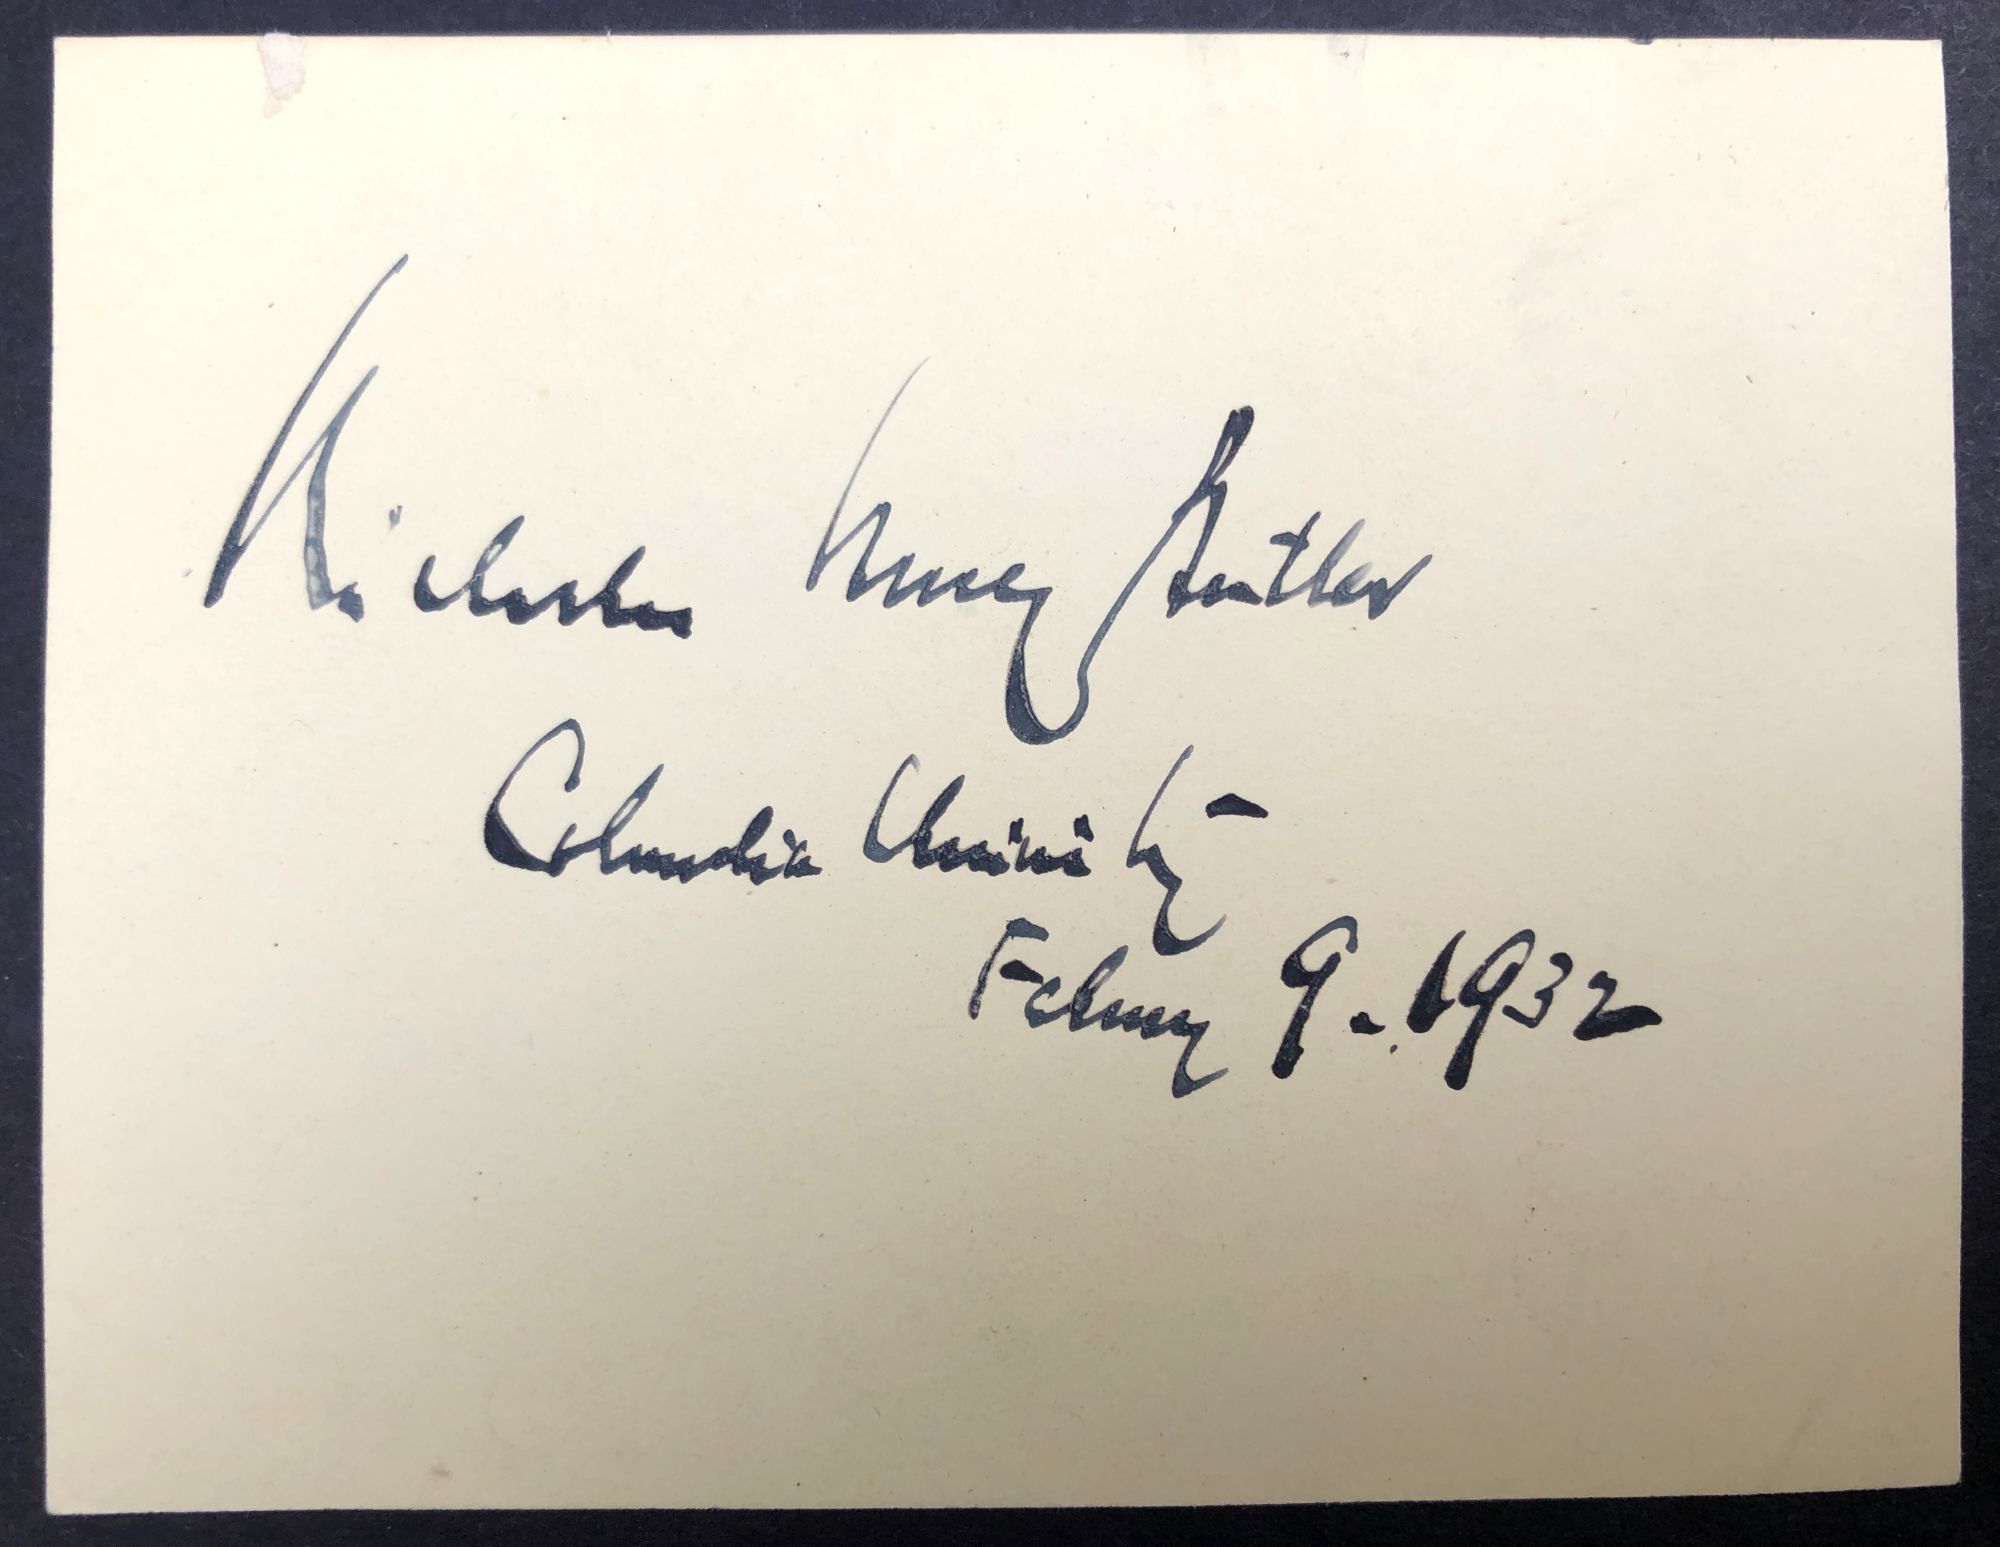 Nicholas Murray Butler
Columbia University
February 9. 1932